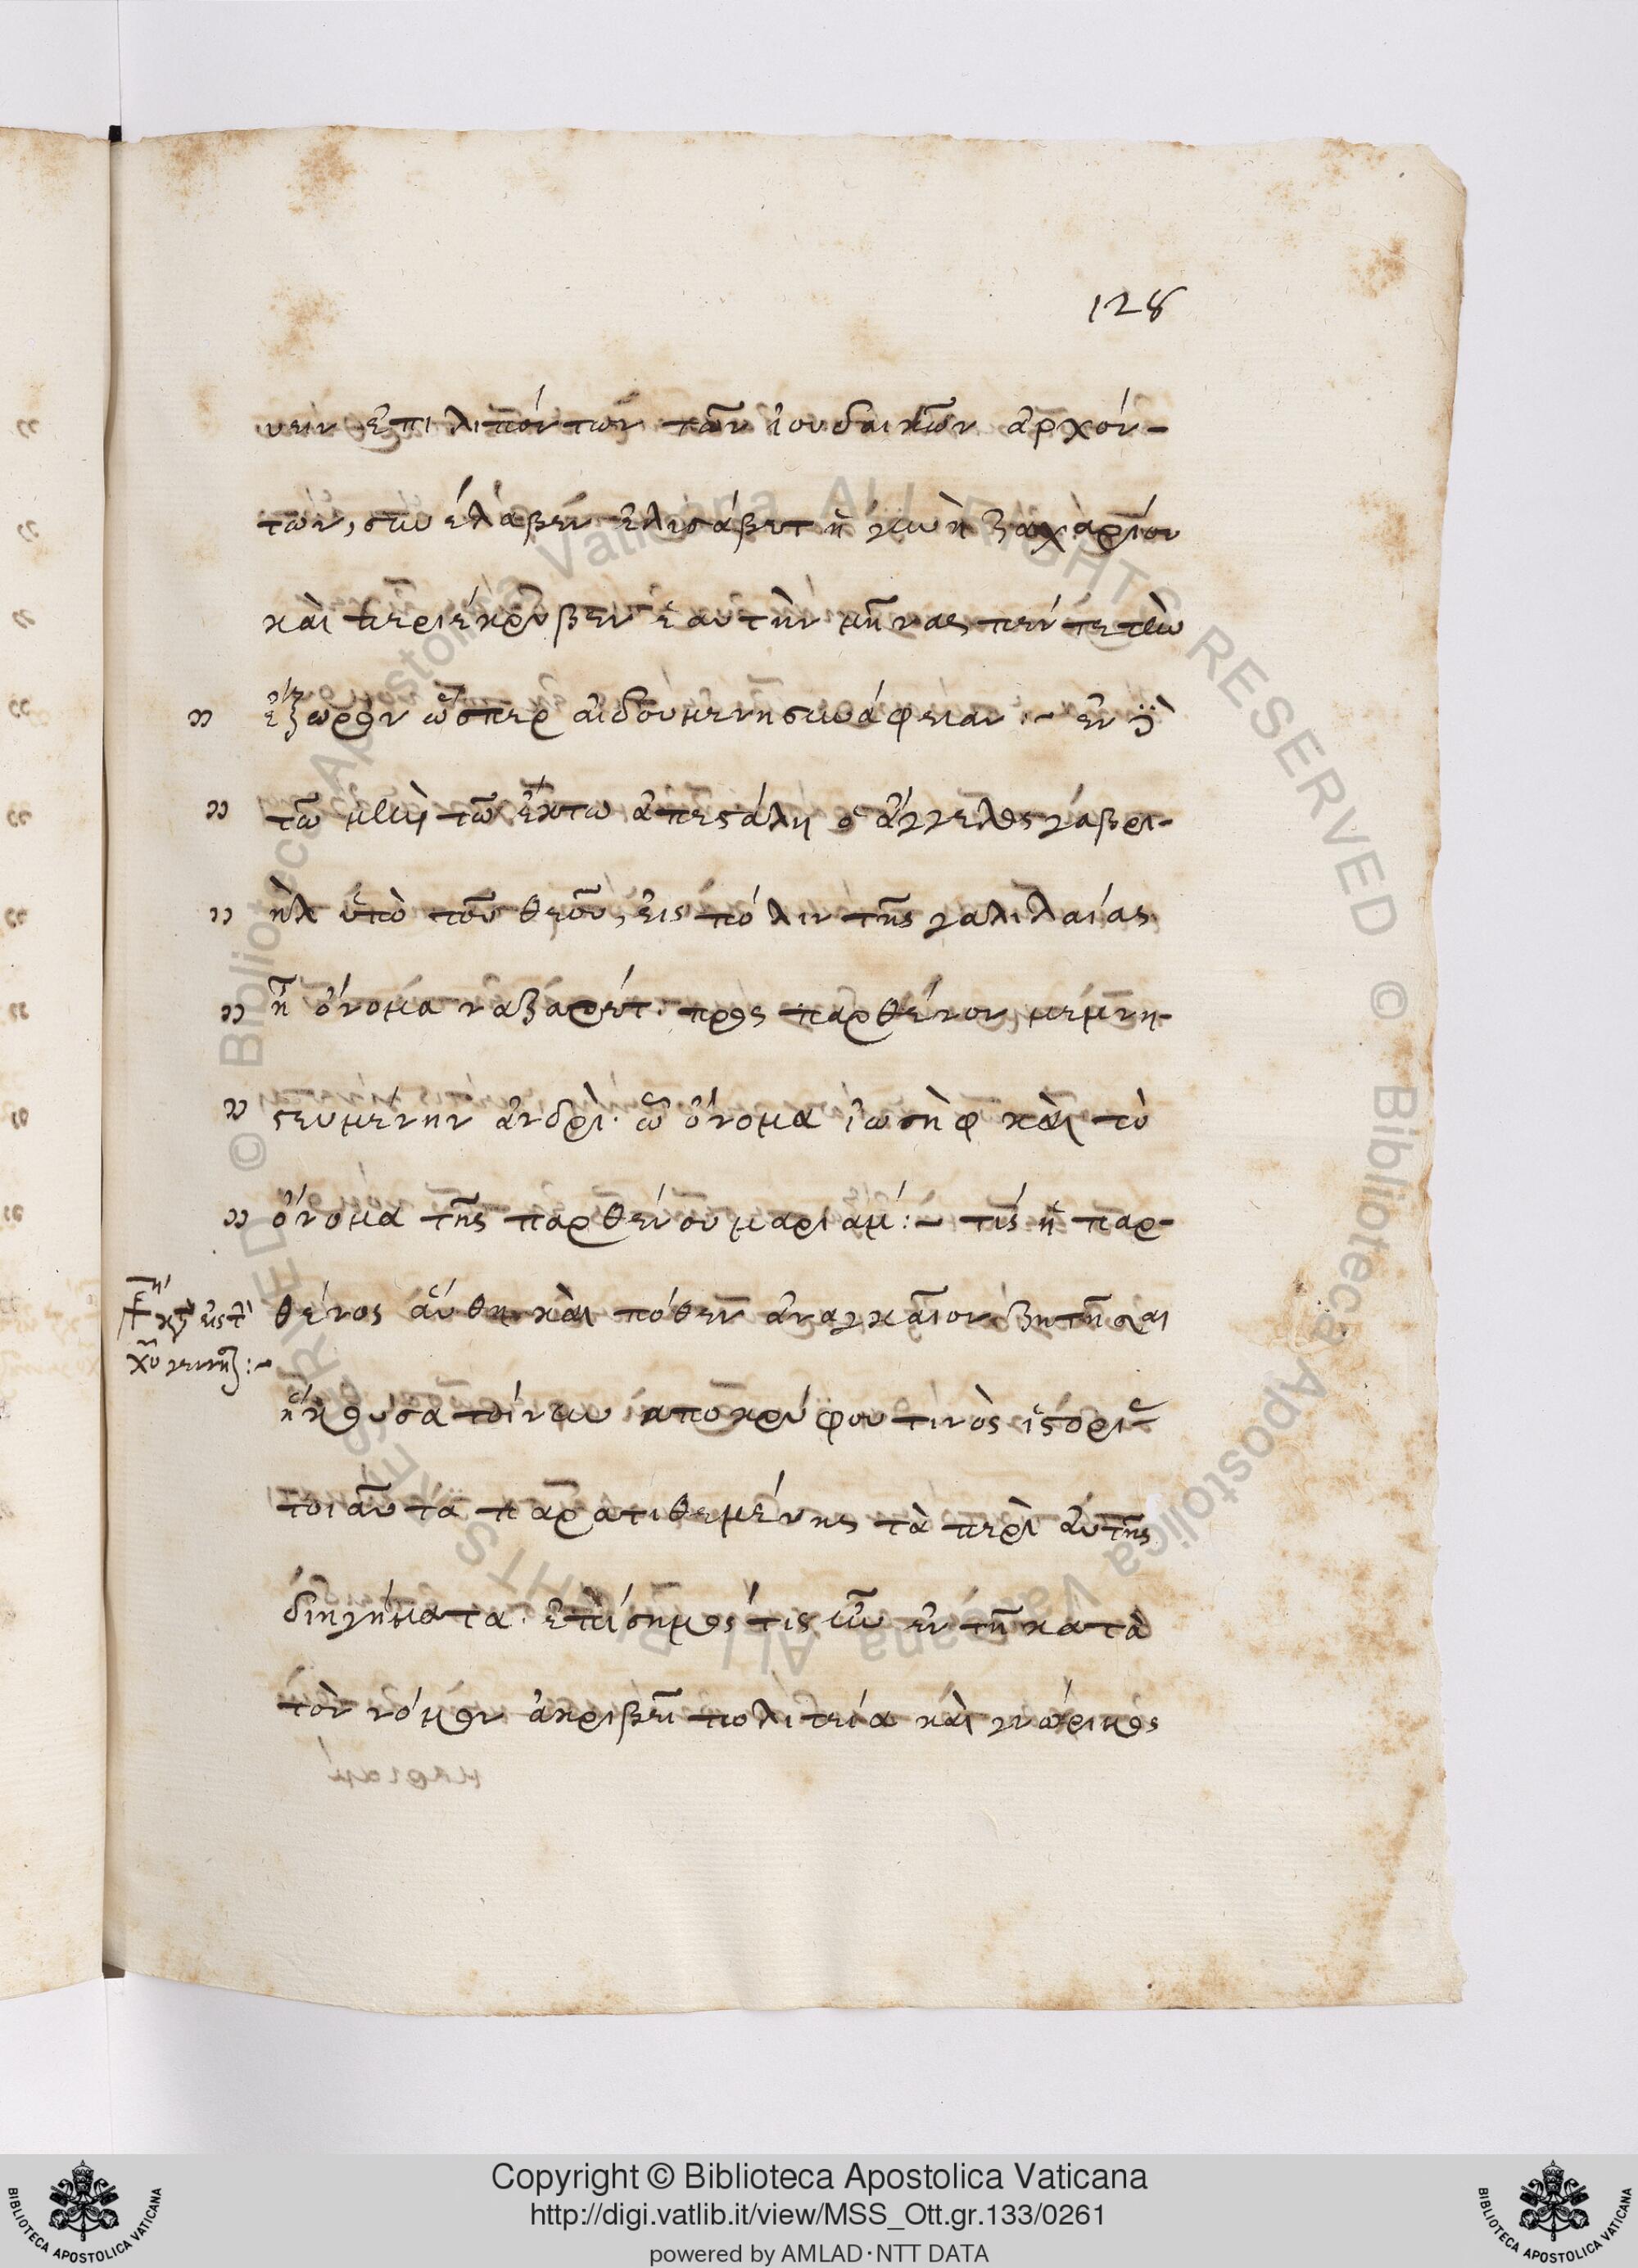 128
υειν ἐπιλιπόντων τῶν ἰουδαικῶν ἀρχόν-
των, συνέλαβεν ἐλισάβετ ἡ γυνὴ ζαχαρίου
καὶ περιέκρυβεν ἑαυτὴν μῆνας πέντε τὴν
ἔξωρον ὥσπερ αἰδουμένη συνάφειαν :- ἐν δὲ
τῶ μηνὶ τῶ ἕκτω ἀπεστάλη ὁ ἄγγελος γαβρι-
ὴλ ὑπὸ τοῦ θεοῦ, εἰς πόλιν τῆς γαλιλαίας
ἧ ὄνομα ναζαρέτ· πρὸς παρθένον μεμνη-
στευμένην ἀνδρὶ· ὧ ὄνομα ἰωσὴφ καὶ τὸ
ὄνομα τῆς παρθένου μαριάμ :- τίς ἡ παρ-
θένος αὕτη καὶ πόθεν ἀναγκαῖον ζητῆσαι
ἤκουσα τοίνυν ἀποκρύφου τινὸς ἱστορι
τοιαῦτα παρατιθεμένης τὰ περὶ αὐτῆς
διηγήματα· ἐπίσημός τις ὢν ἐν τῆ κατὰ
τὸν νόμον ἀκριβεῖ πολιτεία καὶ γνώριμος
Copyright © Biblioteca Apostolica Vaticana
http://digi.vatlib.it/view/MSS_Ott.gr.133/0261
powered by AMLAD·NTT DATA
BIBLIOTECA APOSTOLICA VATICANA
BIBLIOTECA APOSTOLICA VATICANA